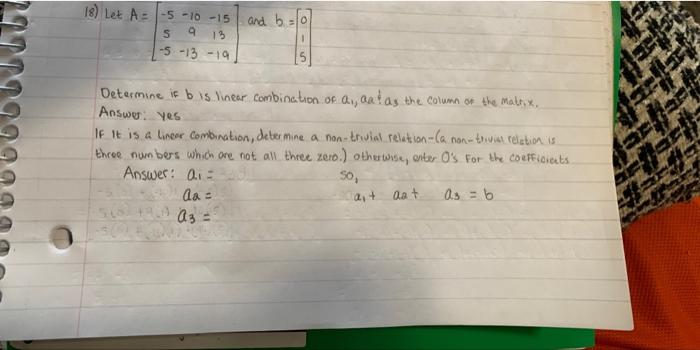 18) Let A = [-5 -10 -15 and b = [0
5 9 13 1
-5 -13 -19] 5]
Determine if b is linear combination of a1, a2 & a3 the column of the matrix.
Answer: yes
If It is a linear combination, determine a non-trivial relation-(a non-trivial relation is
three numbers which are not all three zero.) otherwise, enter 0's For the coefficients
Answer: a1 = so,
a2 = a1 + a2 + a3 = b
a3 =